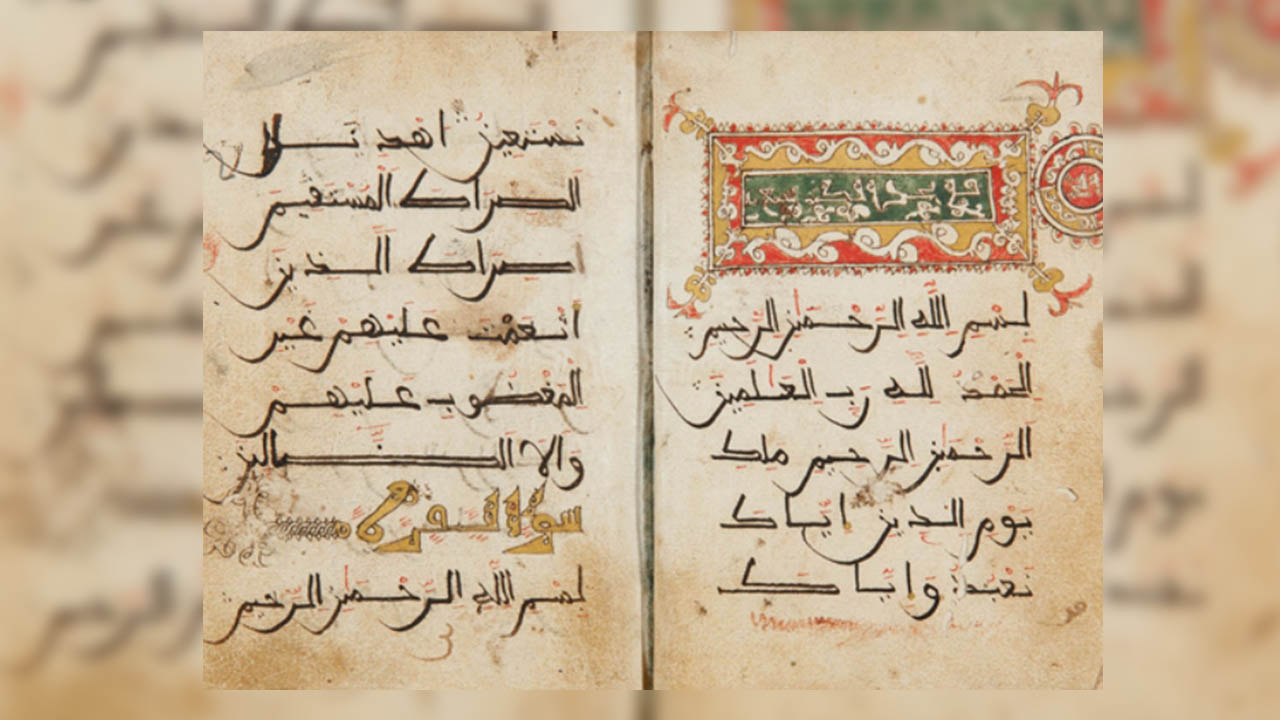 بِسْمِ اللَّهِ الرَّحْمَٰنِ الرَّحِيمِ
الْحَمْدُ لِلَّهِ رَبِّ الْعَٰلَمِينَ
الرَّحْمَٰنِ الرَّحِيمِ مَلِكِ
يَوْمِ الدِّينِ إِيَّاكَ
نَعْبُدُ وَإِيَّاكَ
نَسْتَعِينُ اهْدِنَا
الصِّرَاطَ الْمُسْتَقِيمَ
صِرَاطَ الَّذِينَ
أَنْعَمْتَ عَلَيْهِمْ غَيْرِ
الْمَغْضُوبِ عَلَيْهِمْ
وَلَا الضَّالِّينَ
سورة البقرة
بِسْمِ اللَّهِ الرَّحْمَٰنِ الرَّحِيمِ